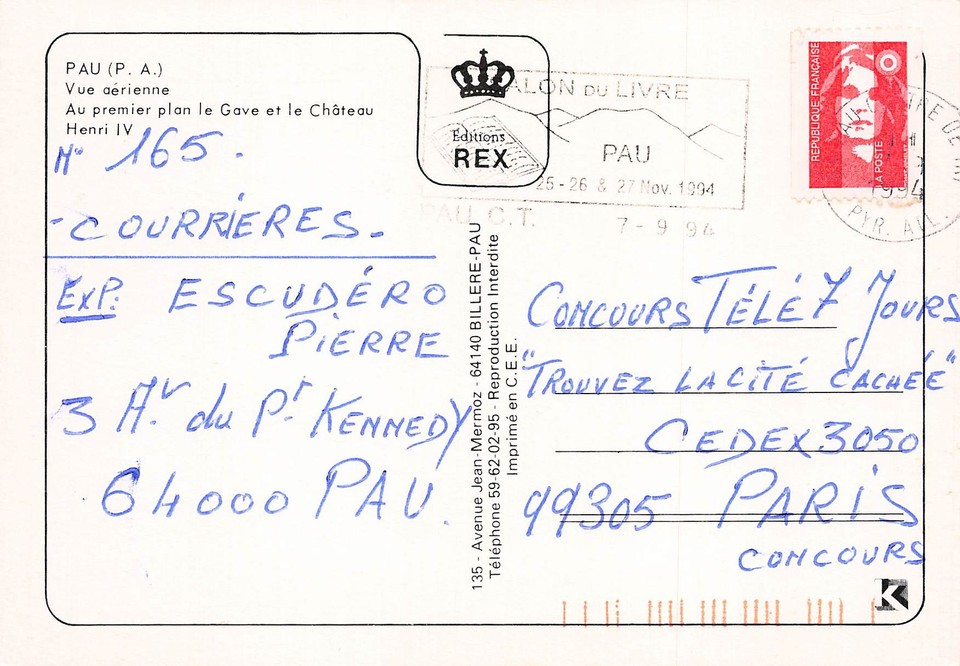 PAU (P. A.)
Vue aérienne
Au premier plan le Gave et le Château
Henri IV
N° 165.
- COURRIERES.
EXP: ESCUDÉRO
PIERRE
3 Av. du Pt KENNEDY
64000 PAU.
Editions
REX
SALON DU LIVRE
PAU
25-26 & 27 Nov. 1994
PAU C.T. 7-9 94
RÉPUBLIQUE FRANÇAISE
LA POSTE
1994
PYR. ATL.
135 - Avenue Jean-Mermoz - 64140 BILLERE-PAU
Téléphone 59-62-02-95 - Reproduction Interdite
Imprimé en C.E.E.
CONCOURS TÉLÉ 7 JOURS
"TROUVEZ LA CITÉ CACHÉE"
CEDEX 3050
99305 PARIS
CONCOURS
K